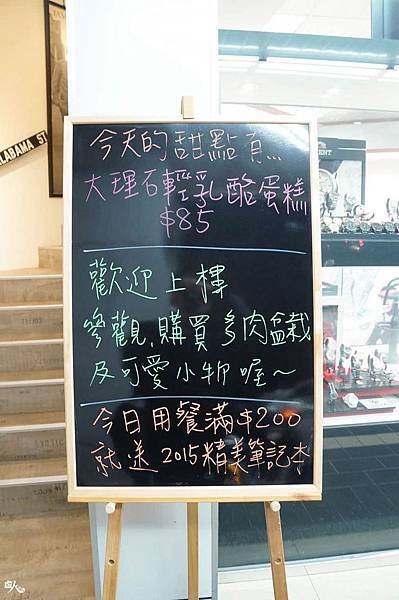 ALABAMA ST
今天的甜點有...
大理石輕乳酪蛋糕
$85
歡迎上樓
參觀,購買多肉盆栽
及可愛小物喔~
今日用餐滿$200
就送2015精美筆記本